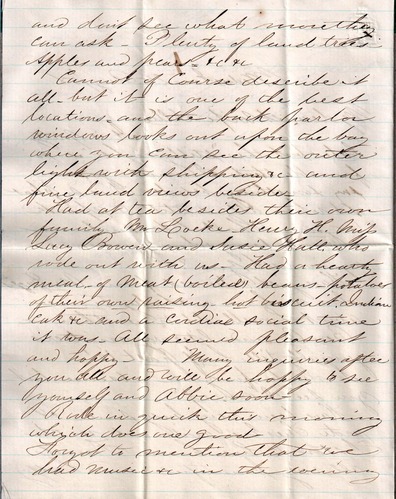 and dont see what more they
can ask - Plenty of land trees
Apples and pears - &c &c
Cannot of Course describe it
all - but it is one of the best
locations - and the back parlor
windows looks out upon the bay
where you can see the outer
light with shipping &c and
fine land views besides
Had at tea besides their own
family Mr Locke - Henry H. Miss
Lucy Bowen and Susie Hall who
rode out with us. Had a hearty
meal - of Meat (boiled) beans - potatoes
of their own raising - hot biscuit - Indian
Cake &c and a cordial social time
it was - All seemed pleasant
and happy - Many inquiries after
you all and will be happy to see
yourself and Abbie soon
in this morning
which does one good
Forgot to mention that we
had music &c in the evening